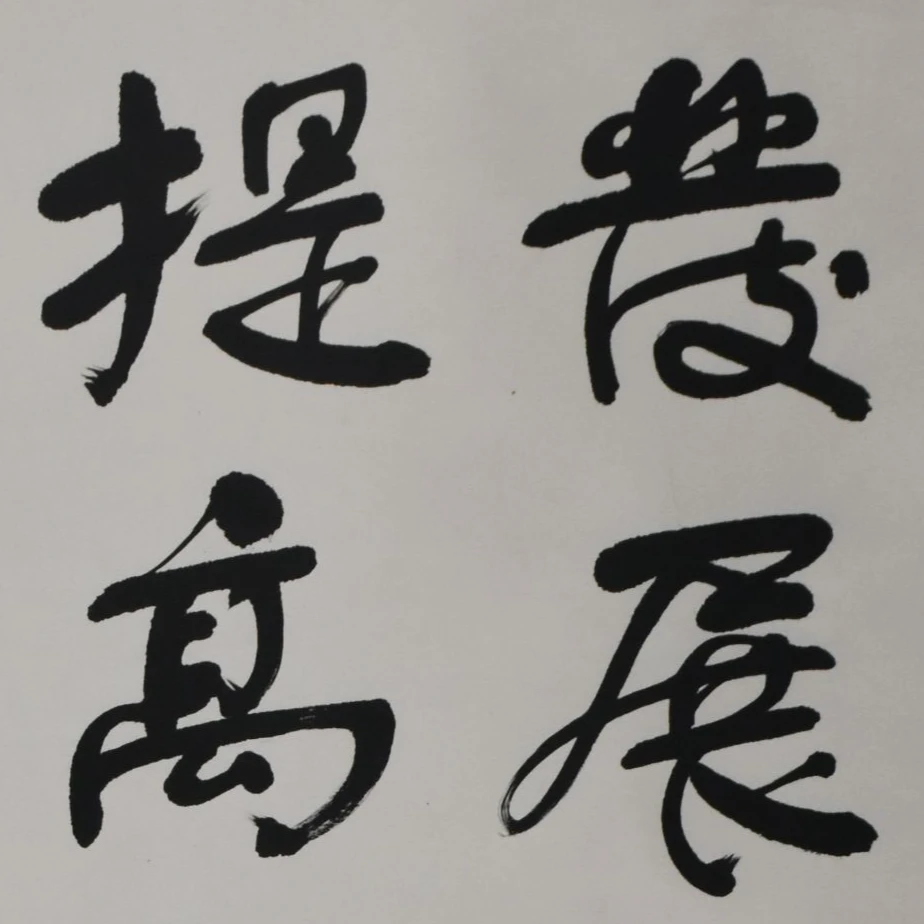 發展
提高